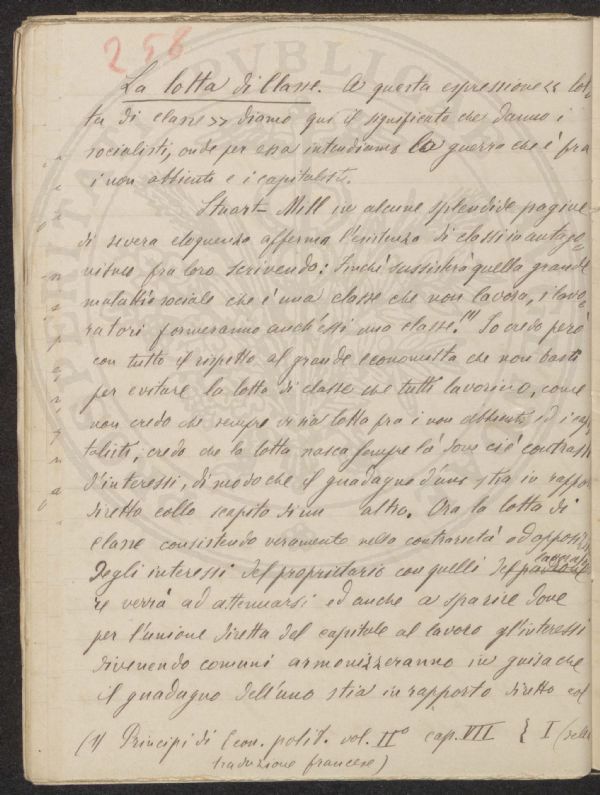 258
La lotta di Classe. A questa espressione << lot-
ta di classe >> diamo qui il significato che danno i
socialisti, onde per essa intendiamo la guerra che è fra
i non abbienti e i capitalisti.
Stuart-Mill in alcune splendide pagine
di severa eloquenza afferma l'esistenza di classi in antago-
nismo fra loro scrivendo: Finchè sussisterà quella grande
malattia sociale che è una classe che non lavora, i lavo-
ratori formeranno anch'essi una classe. (1) Io credo però
con tutto il rispetto al grande economista che non basti
per evitare la lotta di classe che tutti lavorino, come
non credo che sempre vi sia lotta fra i non abbienti ed i cap
talisti, credo che la lotta nasca sempre là dove ci è contrasto
d'interessi, di modo che il guadagno d'uno stia in rappor
diretto collo scapito di un altro. Ora la lotta di
classe consistendo veramente nella contrarietà od opposi
degli interessi del proprietario con quelli del
re verrà ad attenuarsi ed anche a sparire dove
per l'unione diretta del capitale al lavoro gl'interessi
divenendo comuni armonizzeranno in guisa che
il guadagno dell'uno stia in rapporto diretto col
(1) Principi di Econ. polit. vol. IIº cap. VII { I (
traduzione francese)